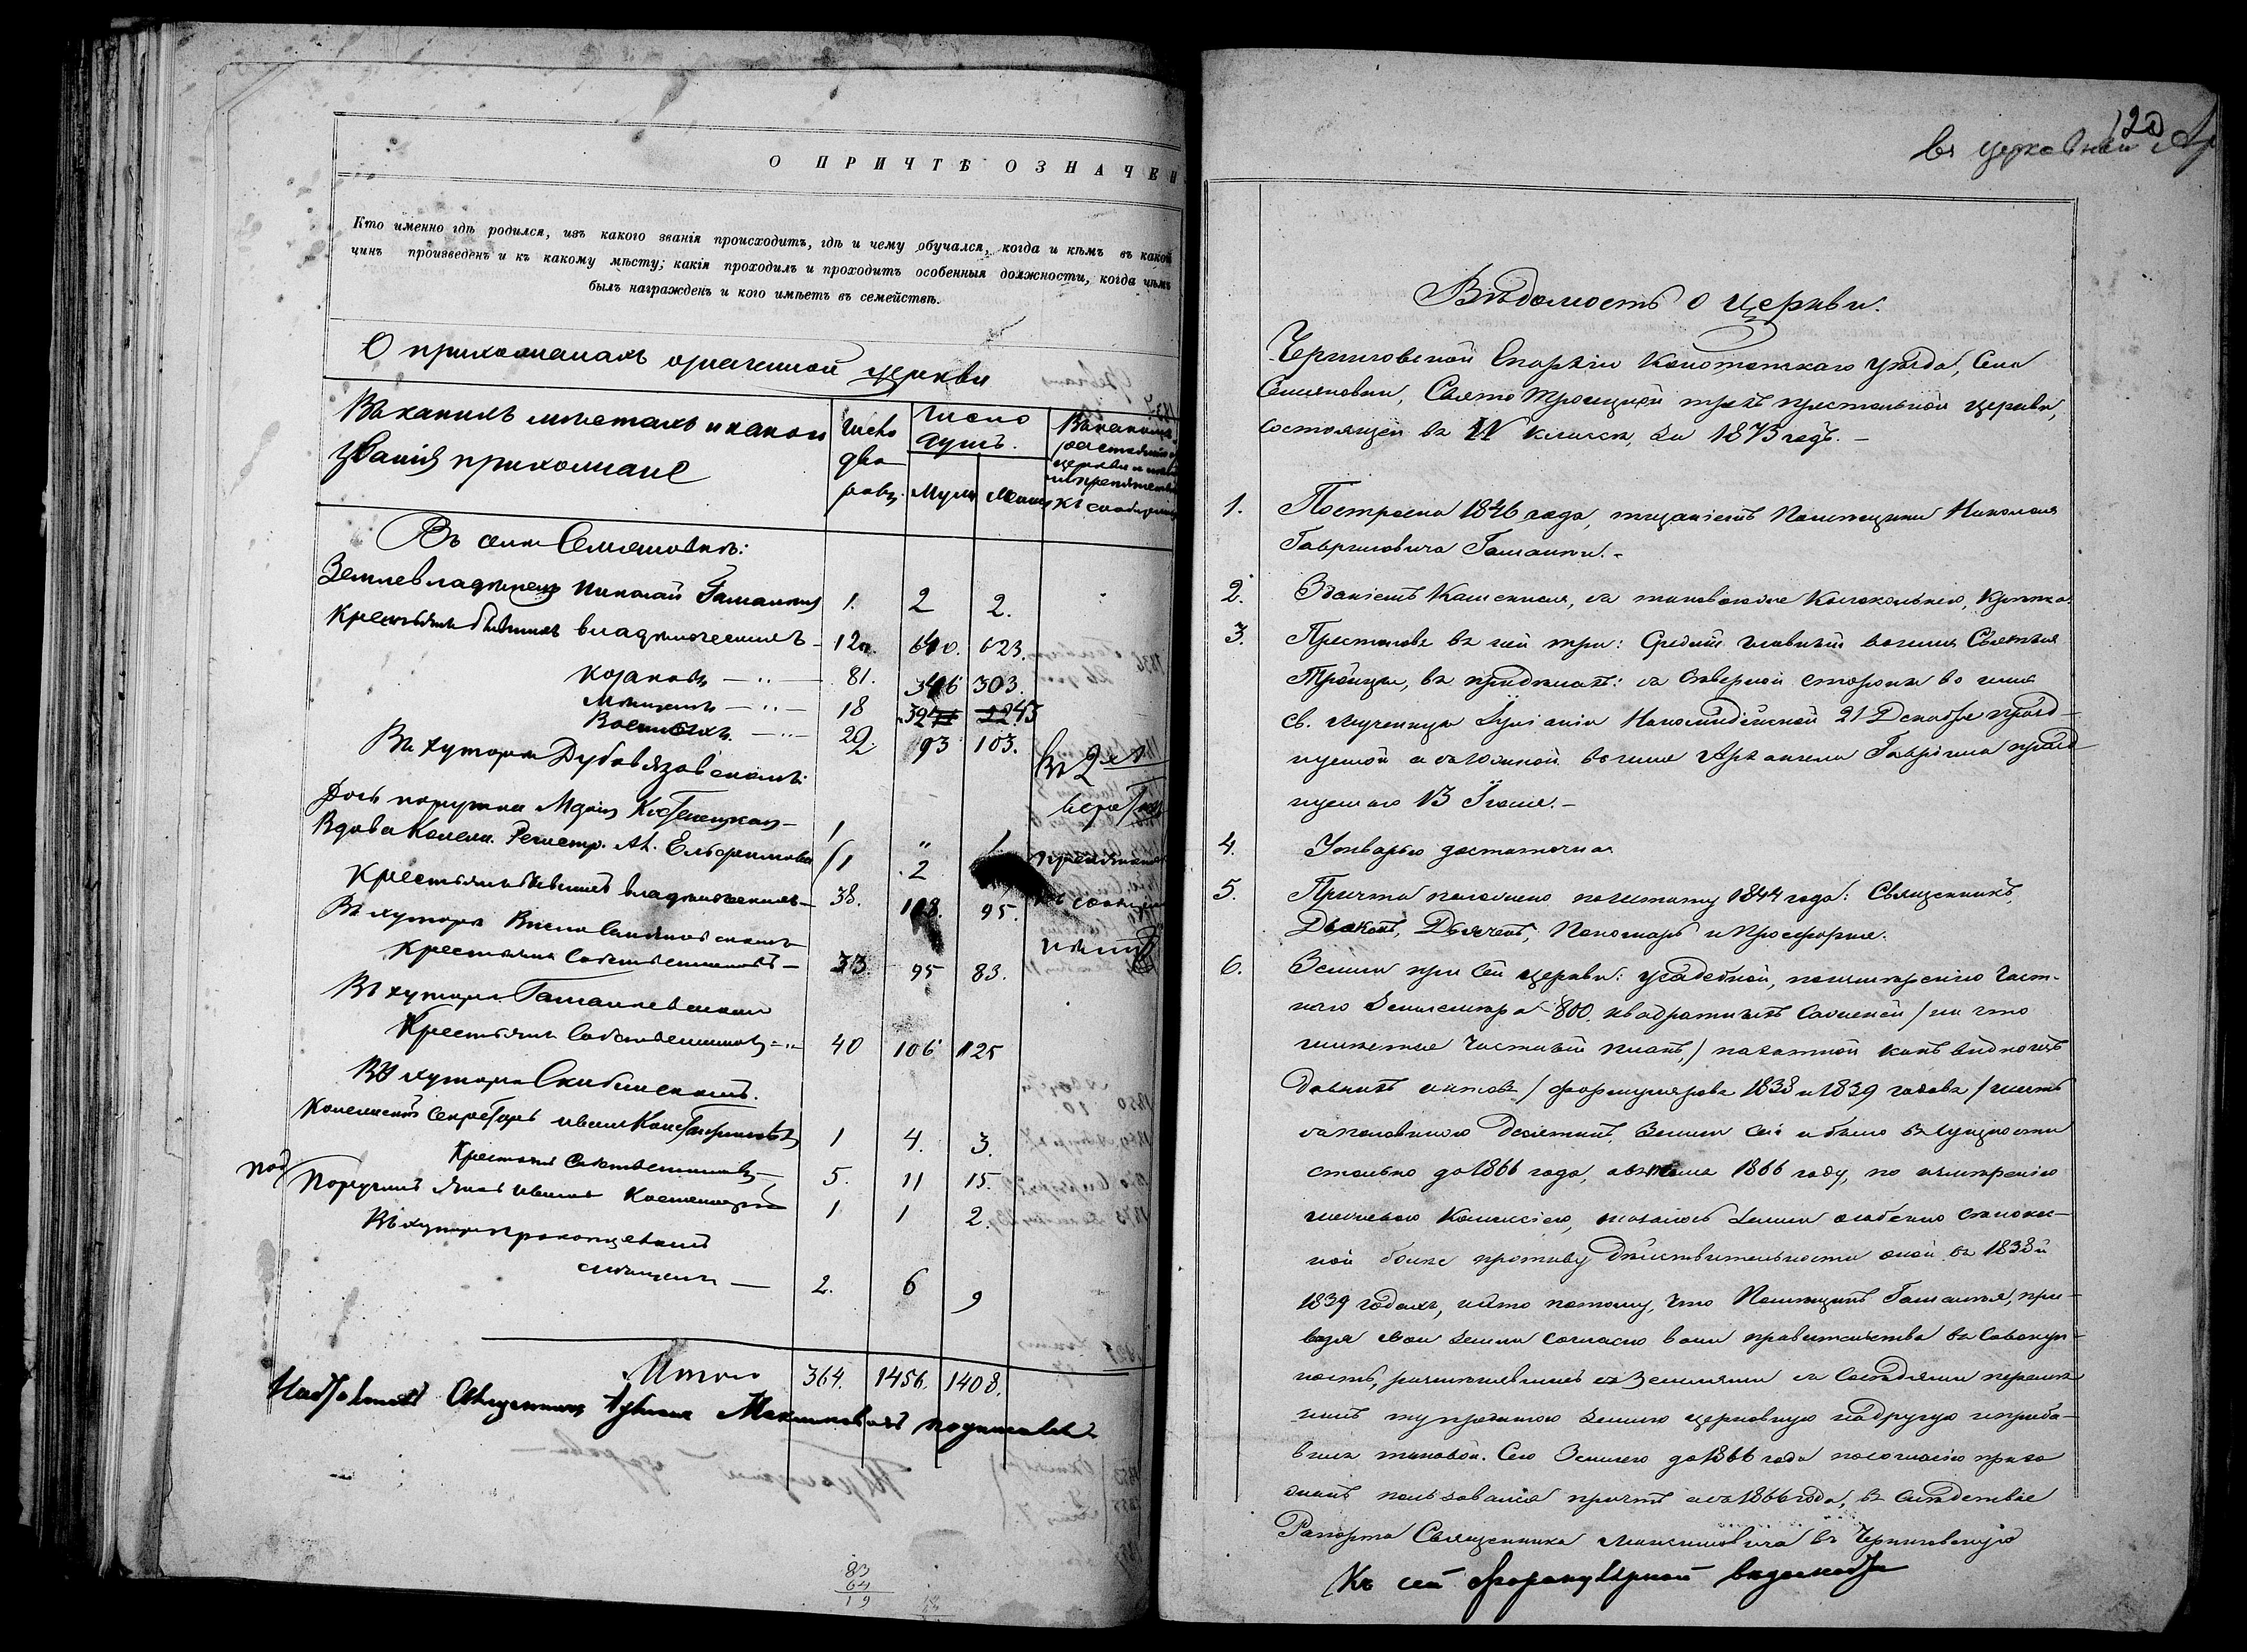 О ПРИЧТѢ ОЗНАЧЕН
Кто именно гдѣ родился, изъ какого званія происходитъ, гдѣ и чему обучался, когда и кѣмъ въ какой
чинъ произведенъ и къ какому мѣсту; какія проходилъ и проходитъ особенныя должности, когда чѣмъ
былъ награжденъ и кого имѣетъ въ семействѣ.
О прихожанахъ означенной церкви
Въ какихъ мѣстахъ и какого
званія прихожане
Число
дво
ровъ.
Число
душъ.
Муж
Женск
Въ селѣ Семяновкѣ:
Землевладѣлецъ Николай Гамалѣя 1. 2 2.
Крестьянъ бывшихъ владѣльческихъ 120. 610. 623.
Козаковъ — „ — 81. 303.
Мѣщанъ — „ — 18
Военныхъ — „ — 22. 93 103.
Въ хуторѣ Дубовязовскомъ:
1 „ 1
Вдова Коллеж. Регистр. 1 2
Крестьянъ бывшихъ владѣльческихъ — 38. 108. 95.
Въ хуторѣ
Крестьянъ Собственниковъ — 33. 95 83.
Въ хуторѣ Гамалѣевскомъ
Крестьянъ Собственниковъ — „ 40 106 125
Въ хуторѣ Скибинскомъ.
Коллежскій Секретарь 1 4. 3.
Крестьянъ Собственниковъ — 5. 11 15.
Поручикъ 1 1 2.
Въ хуторѣ Прокопцевкомъ
мѣщанъ — 2. 6 9
Итого 364. 1456. 1408.
Священникъ Максимовичъ подписалъ
83
64
19
120
въ церковный Ар
Вѣдомость о церкви.
Черниговской Епархіи Конотопскаго уѣзда, Села
Семяновки, Свято Троицкой трехъ престольной церкви,
состоящей въ IV классѣ, за 1873 годъ. —
1. Построена 1846 года, тщаніемъ Помѣщика Николая
Гавриловича Гамалѣи. —
2. Зданіемъ Каменная, съ таковою же Колокольнею, Крѣпка.
3. Престоловъ въ ней три: Средній главный во имя Святыя
Троицы, въ придѣлахъ: съ сѣверной стороны во имя
Св. мученицы Іуліаніи Никомидійской 21 Декабря празд-
нуемой а съ южной во имя Архангела Гавріила празд
нуемаго 13 Іюля. —
4. Утварью достаточна
5. Причта положено по штату 1844 года: Священникъ,
Діаконъ, Дьячекъ, Пономарь и Просфорня.
6. Земли при сей церкви: усадебной, по измѣренію Част-
наго Землемѣра 800. квадратныхъ Саженей / на что
имѣется Частный планъ, / пахатной какъ видно изъ
давнихъ актовъ / формуляровъ 1838 и 1839 годовъ / шесть
съ половиною десятинъ, Земли сей и было въ сущности
столько до 1866 года, 1866 году, по измѣренію
межевою Коммисіею, оказалось Земли особенно
ной болѣе противу дѣйствительности оной въ 1838 и
1839 годахъ, и это потому, что Помѣщикъ Гамалѣя, при-
водя свои земли согласно воли правительства въ Совокуп-
ность, размѣнявшись Землями съ Сосѣдями перемѣ
нилъ ту пахатную землю церковную на другую и приба-
вилъ таковой. Сею Землею до 1866 года по согласію прихо
жанъ пользовался причтъ а съ 1866 года, въ слѣдствіе
Рапорта Священника Максимовича въ Черниговскую
Къ сей формулярной вѣдомости